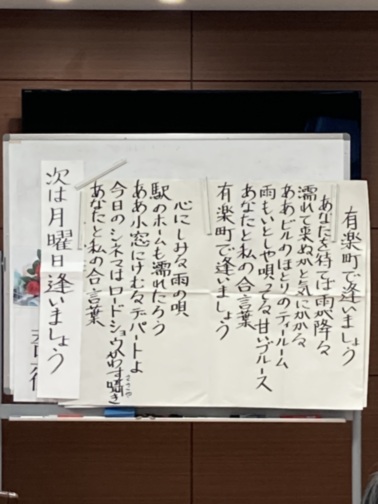 有楽町で逢いましょう
あなたを待てば雨が降る
濡れて来ぬかと気にかかる
ああビルのほとりのティールーム
雨もいとしや唄ってる甘いブルース
あなたと私の合言葉
有楽町で逢いましょう
心にしみる雨の唄
駅のホームも濡れたろう
ああ小窓にけむるデパートよ
今日のシネマはロードショウかわす囁き
あなたと私の合言葉
次は月曜日逢いましょう